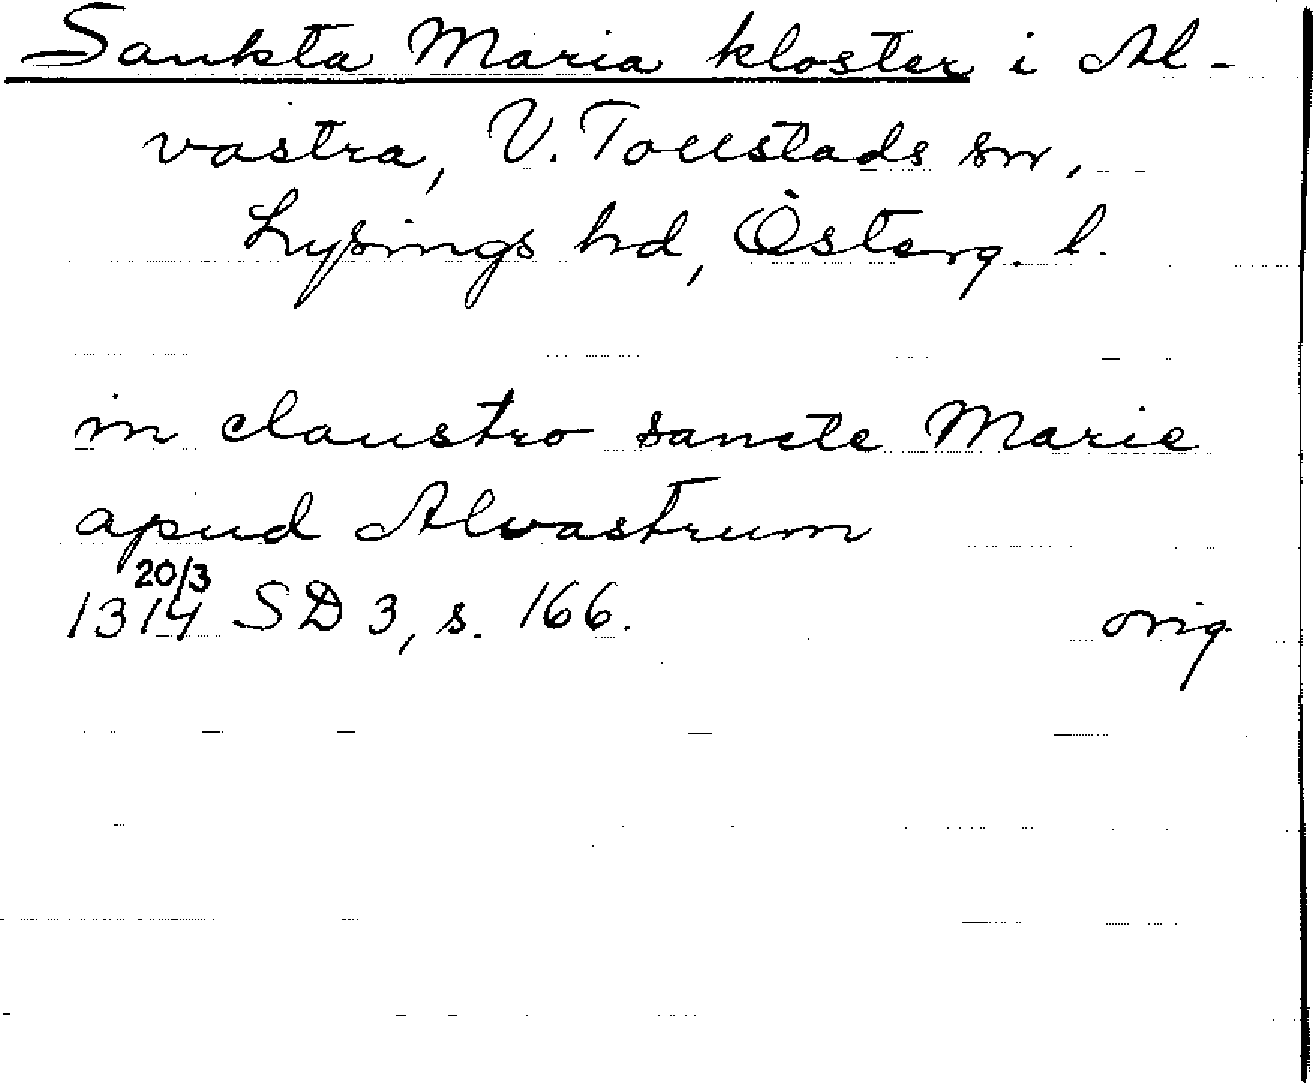 Sankta Maria kloster i Al-
vastra, V. Tollstads sn,
Lysings hd, Österg. l.
in claustro sancte Marie
apud Alvastrum
20/3
1314 SD 3, s. 166. orig